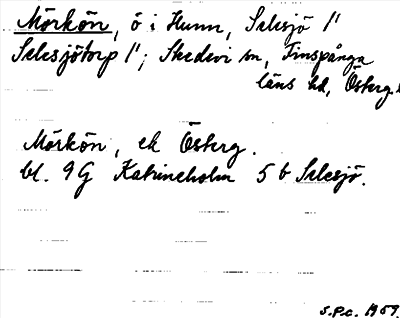 Mörkön, ö i Hunn, Salesjö 1"
Salesjötorp 1"; Skedevi sn, Finspånga
läns hd, Österg.
Mörkön, ek Österg.
bl. 9G Katrineholm 5 b Salesjö.
S.P.C. 1959